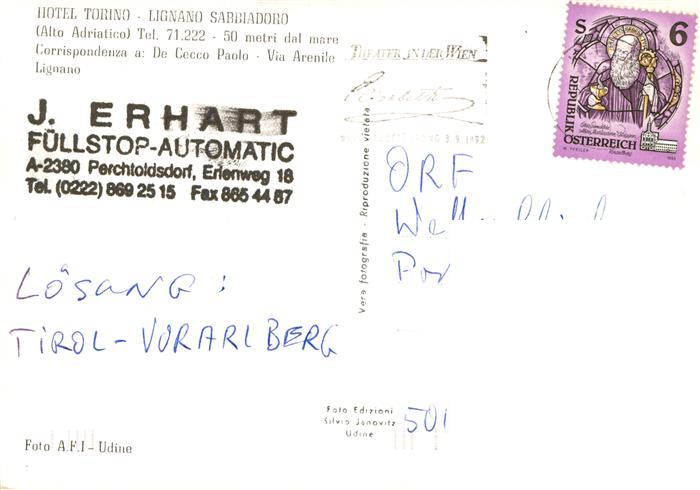 HOTEL TORINO - LIGNANO SABBIADORO
(Alto Adriatico) Tel. 71.222 - 50 metri dal mare
Corrispondenza a: De Cecco Paolo - Via Arenile
Lignano
J. ERHART
FÜLLSTOP-AUTOMATIC
A-2380 Perchtoldsdorf, Erlenweg 18
Tel. (0222) 869 25 15 Fax 865 44 87
LÖSUNG:
TIROL-VORARLBERG
Foto A.F.I - Udine
THEATER IN DER WIEN
Elisabeth
3.9.1992
S 6
REPUBLIK
ÖSTERREICH
Vera fotografia - Riproduzione vietata
ORF
Foto Edizioni
Silvio Janovitz
Udine
501